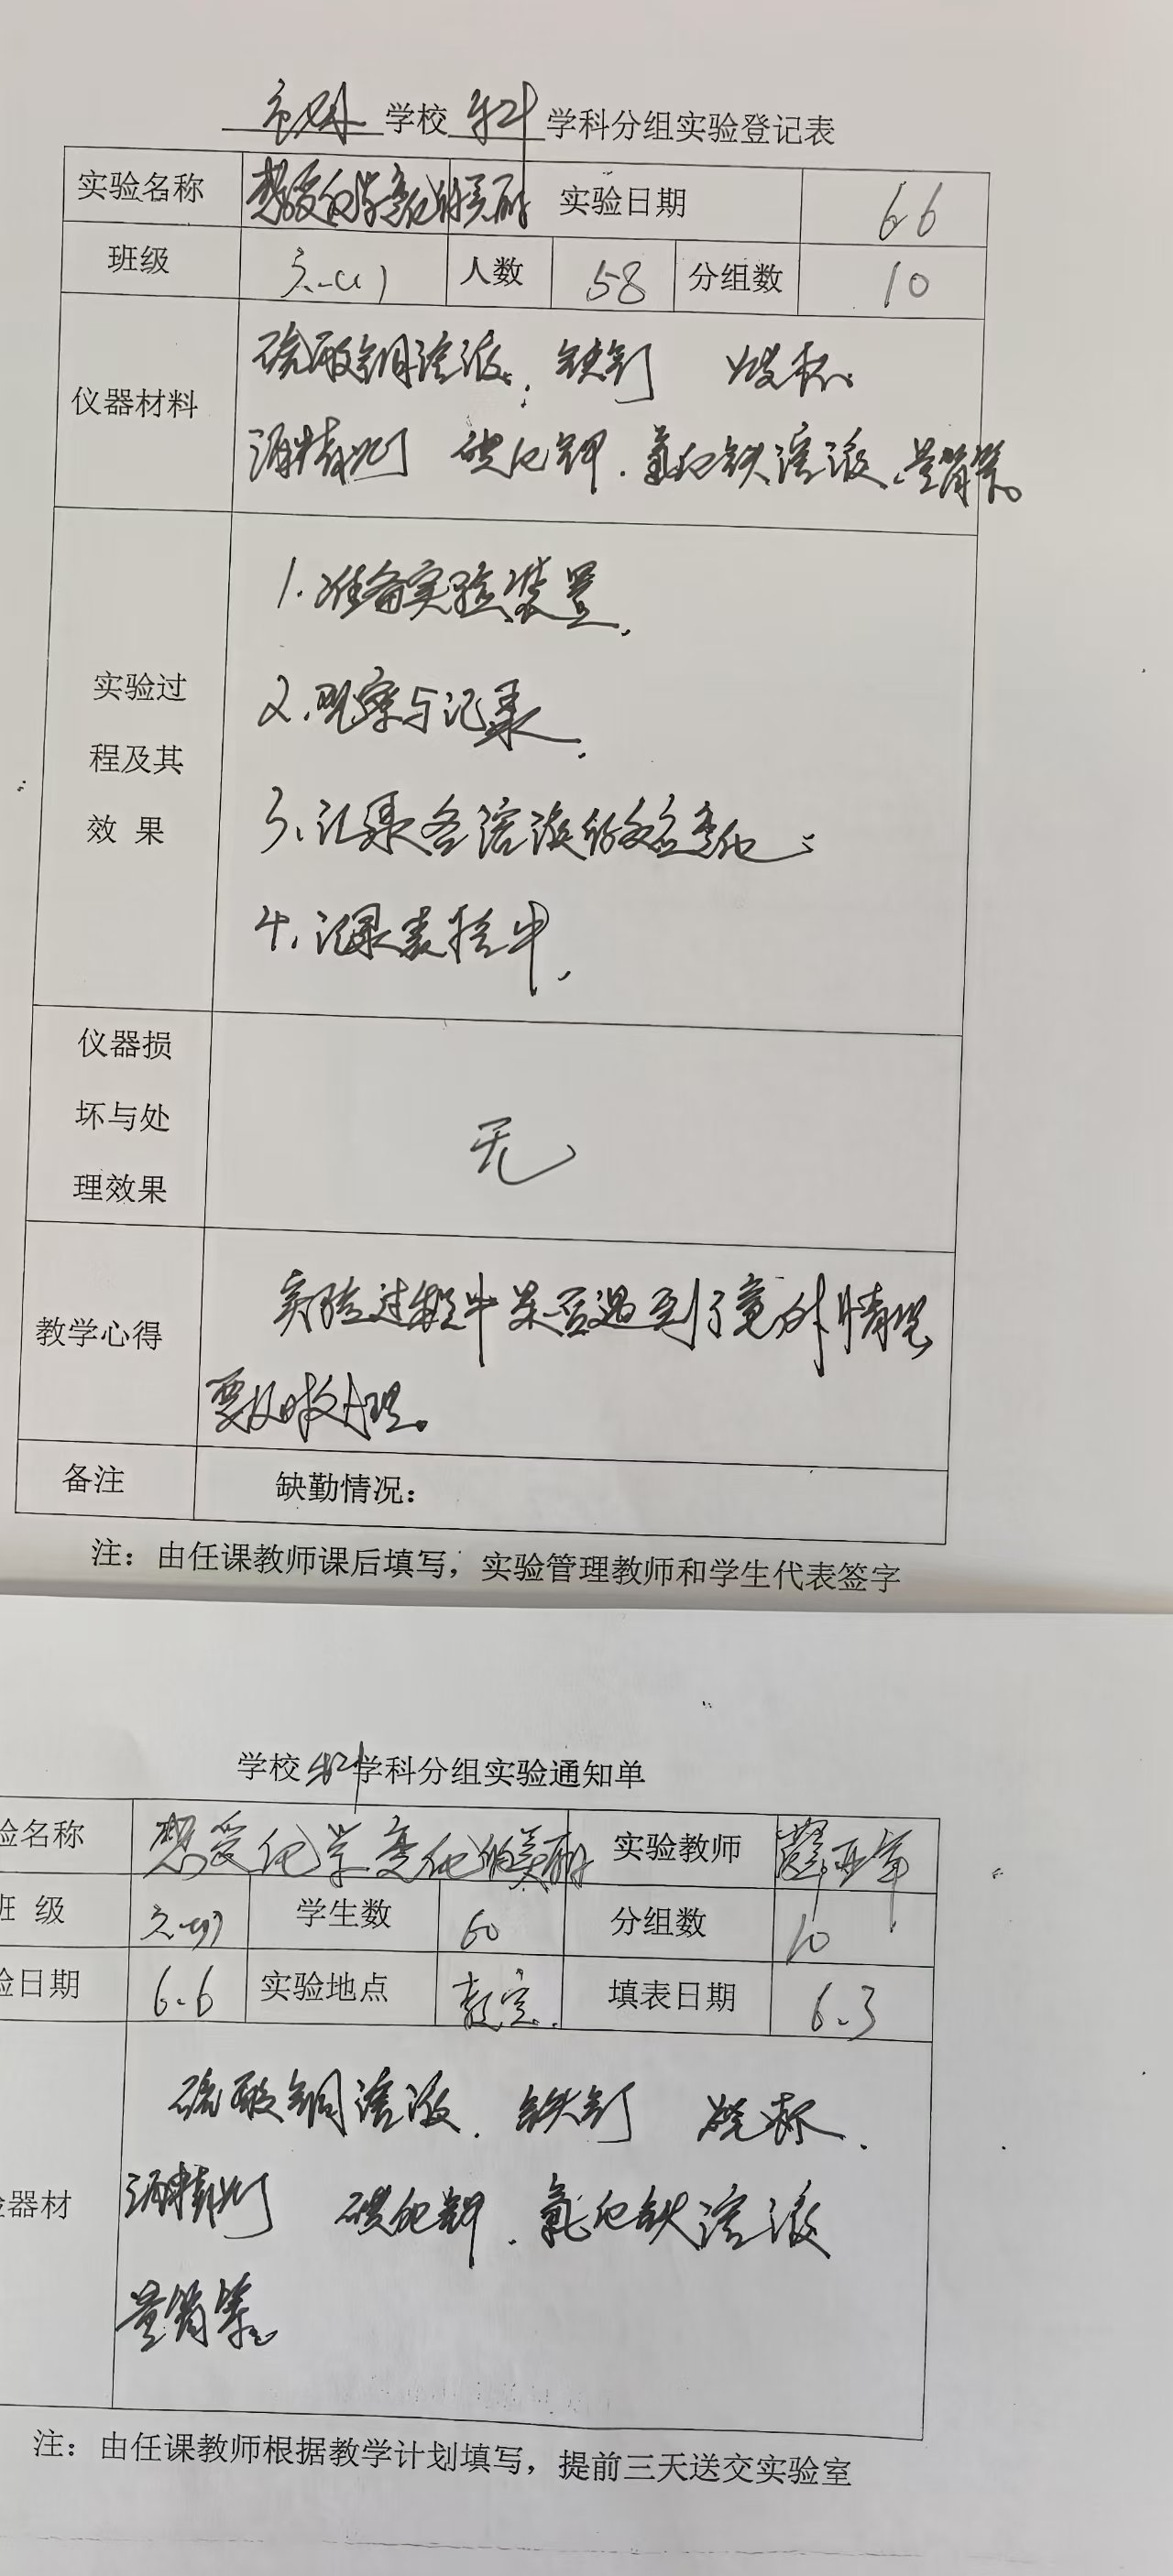 学校 学科分组实验登记表
实验名称 实验日期 6.6
班级 六(1) 人数 58 分组数 10
仪器材料
硫酸铜溶液、铁钉 烧杯、
酒精灯 碘化钾、氯化铁溶液、量筒等。
实验过
程及其
效 果
1.准备实验装置.
2.观察与记录.
3.记录各溶液的反应变化。
4.记录表格中.
仪器损
坏与处
理效果
无
教学心得
实验过程中是否遇到了意外情况
要及时处理。
备注 缺勤情况:
注:由任课教师课后填写,实验管理教师和学生代表签字
学校 学科分组实验通知单
验名称 感受化学变化的美丽 实验教师
班 级 学生数 60 分组数 10
验日期 6.6 实验地点 教室. 填表日期 6.3
器材
硫酸铜溶液、铁钉 烧杯、
酒精灯 碘化钾、氯化铁溶液
量筒等。
注:由任课教师根据教学计划填写,提前三天送交实验室